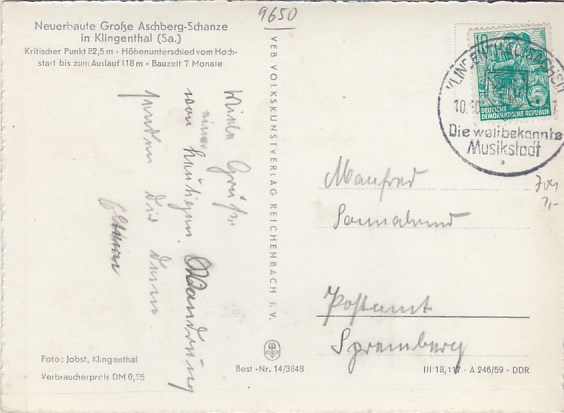 9650
Neuerbaute Große Aschberg-Schanze
in Klingenthal (Sa.)
Kritischer Punkt 82,5 m · Höhenunterschied vom Hoch-
start bis zum Auslauf 118 m · Bauzeit 7 Monate
Viele Grüße
von einer
heutigen Wandrung
senden Dir Deine
Eltern
VEB VOLKSKUNSTVERLAG REICHENBACH I. V.
10
DEUTSCHE
DEMOKRATISCHE REPUBLIK
5
KLINGENTHAL
10.10
Die weltbekannte
Musikstadt
Manfred
Sonnabend
Postamt
Spremberg
Foto: Jobst, Klingenthal
Verbraucherpreis DM 0,25
Best.-Nr. 14/3848
III 18,117 - A 246/59 - DDR